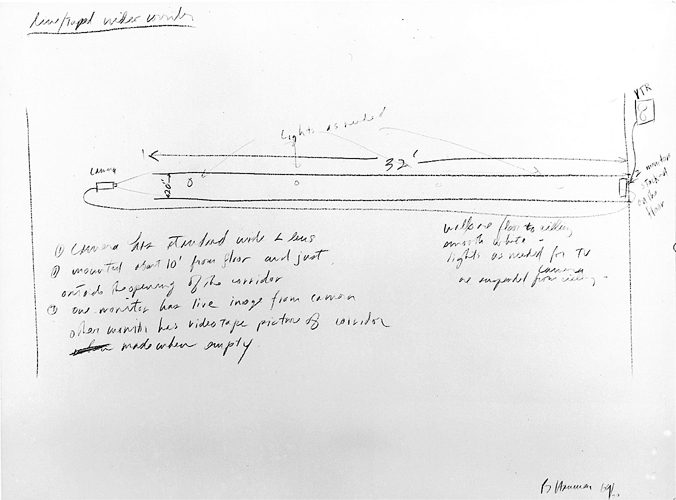 Live/taped video corridor
VTR
Lights as needed
32'
camera
20"
2 monitors
stacked
on the
floor
walls are floor to ceiling
smooth white -
lights as needed for TV
camera
are suspended from ceiling -
① camera has standard wide ∠ lens
② mounted about 10' from floor and just
outside the opening of the corridor
③ one monitor has live image from camera
other monitor has videotape picture of corridor
made when empty
B Nauman 69